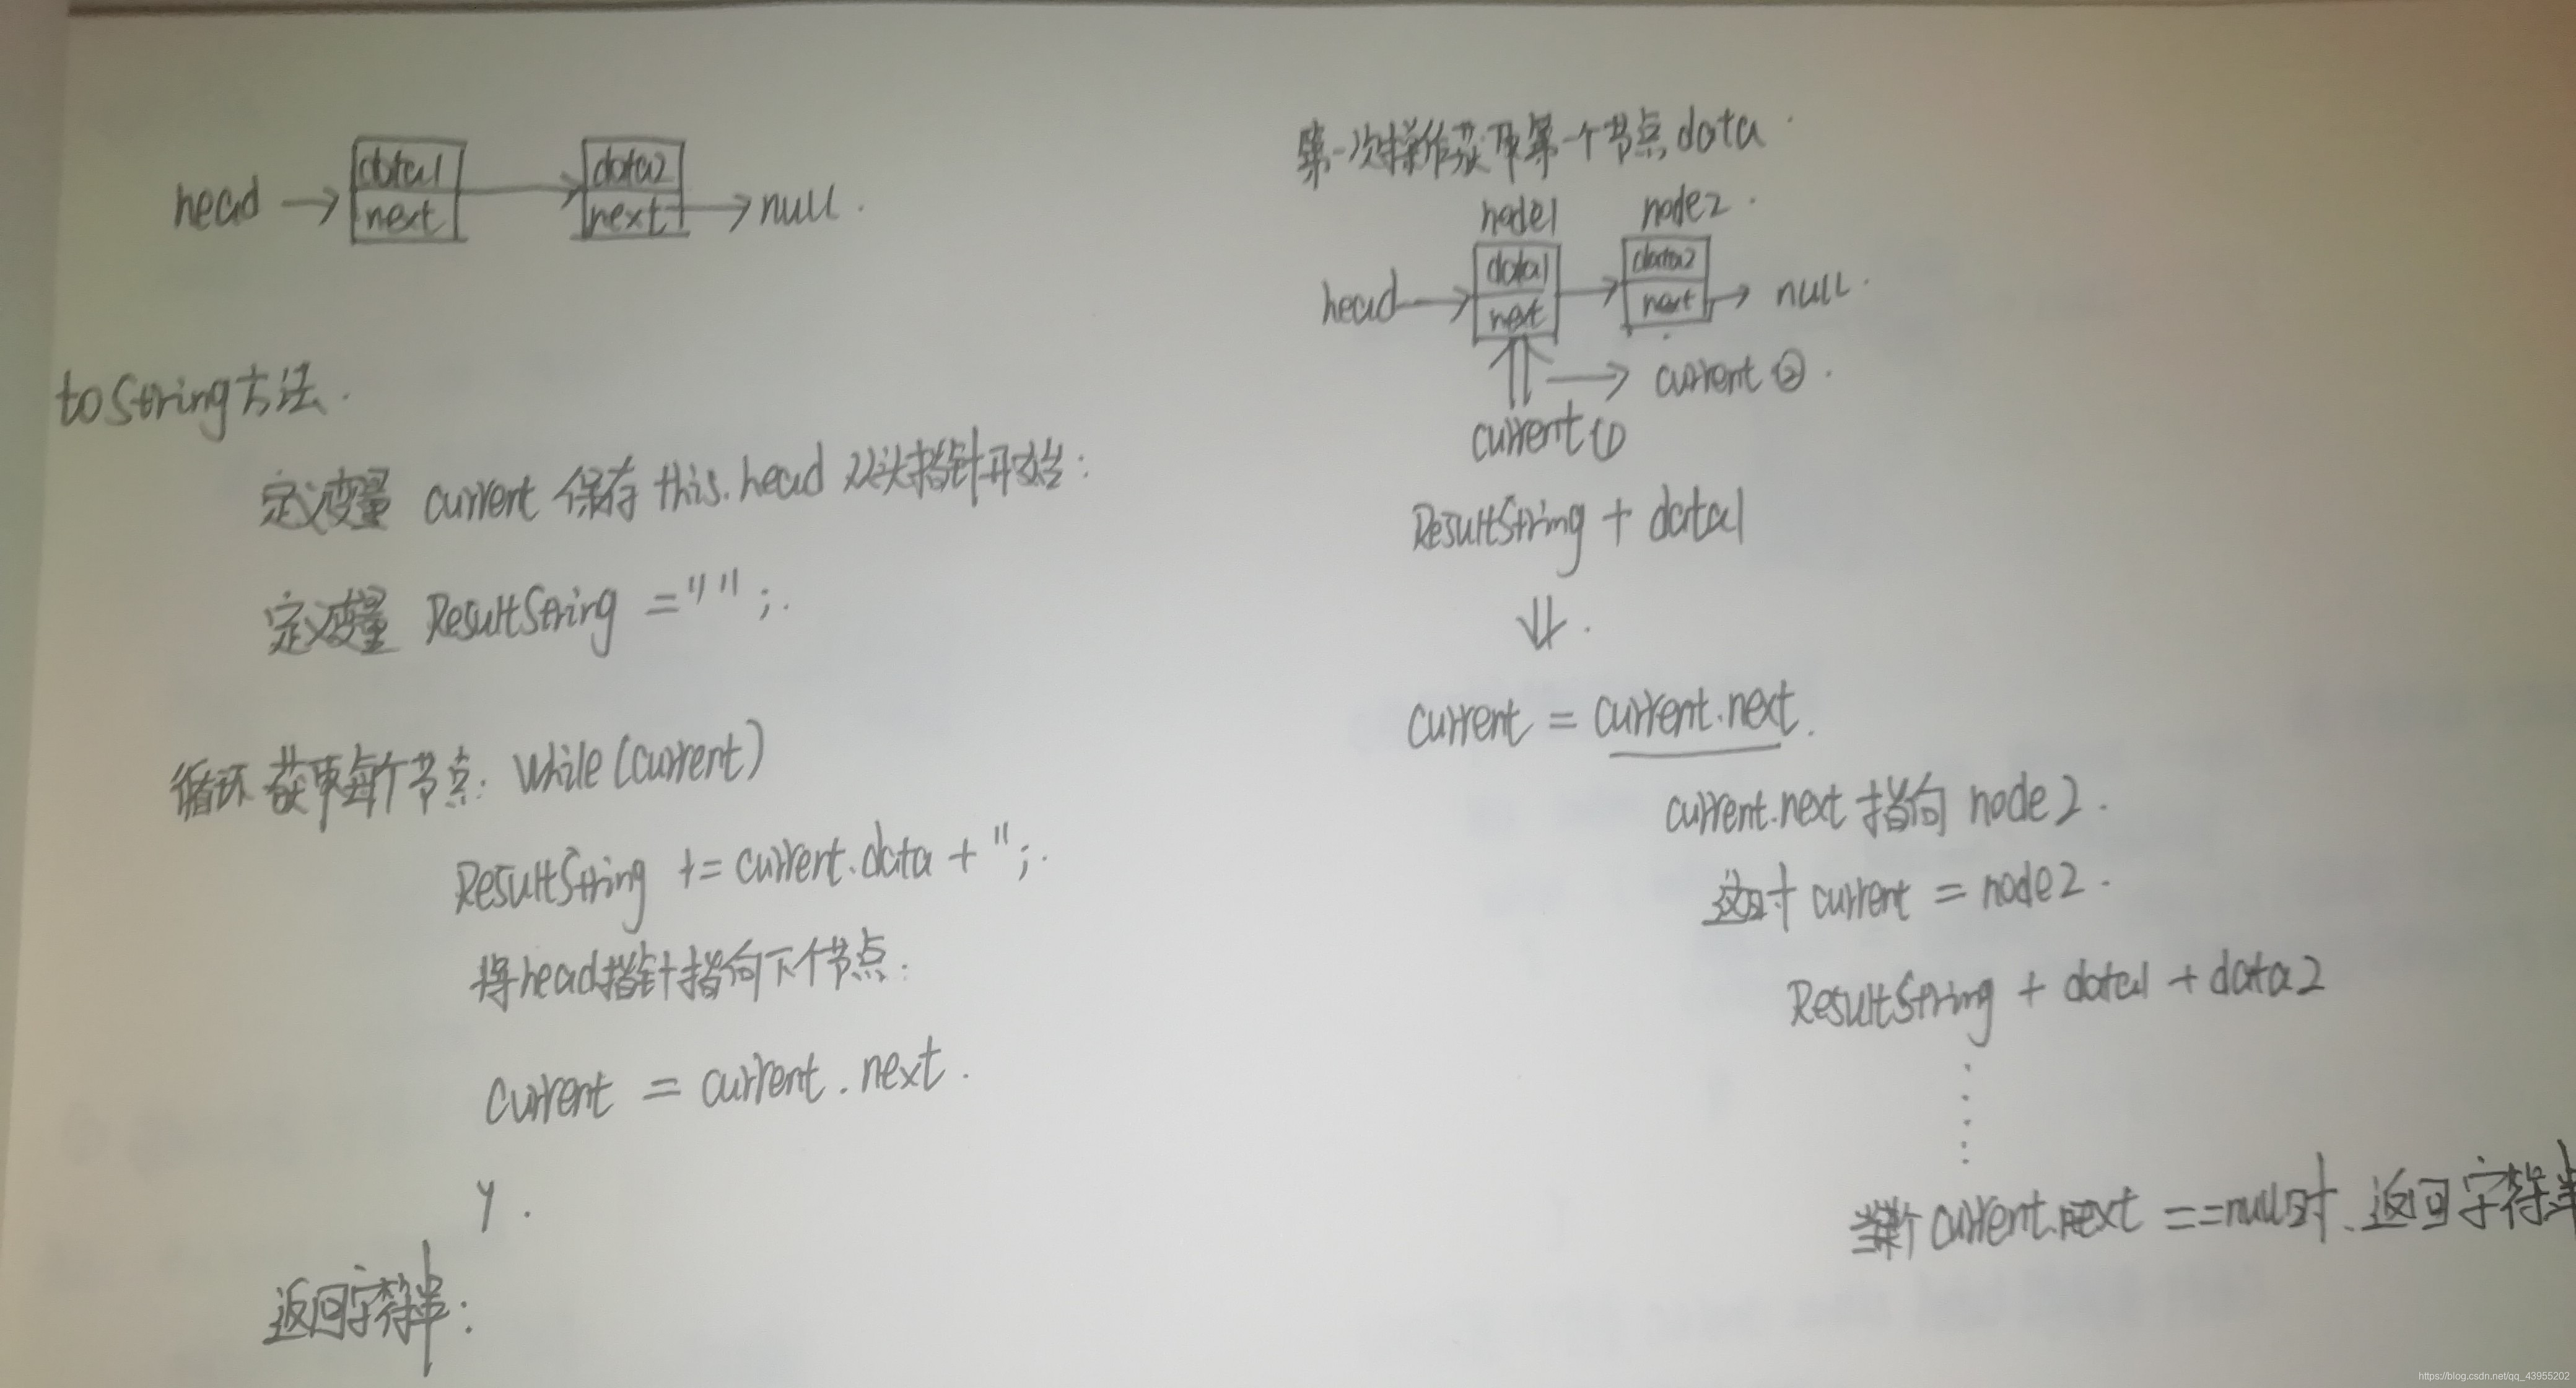 head → data1 → data2 → null.
next next
toString方法.
定义变量 current 保存 this.head 从头指针开始:
定义变量 ResultString = " " ;.
循环 获取每个节点: while (current)
ResultString += current.data + " ;.
将head指针指向下个节点.
current = current . next .
y .
返回字符串:
第一次操作获取第一个节点 data .
node1 node2 .
head → data1 → data2
next next → null .
→ current ② .
current ①
ResultString + data1
⇓ .
current = current.next.
current.next 指向 node 2 .
这时 current = node 2 .
ResultString + data1 + data 2
当 current.next ==null时. 返回字符串
https://blog.csdn.net/qq_43955202